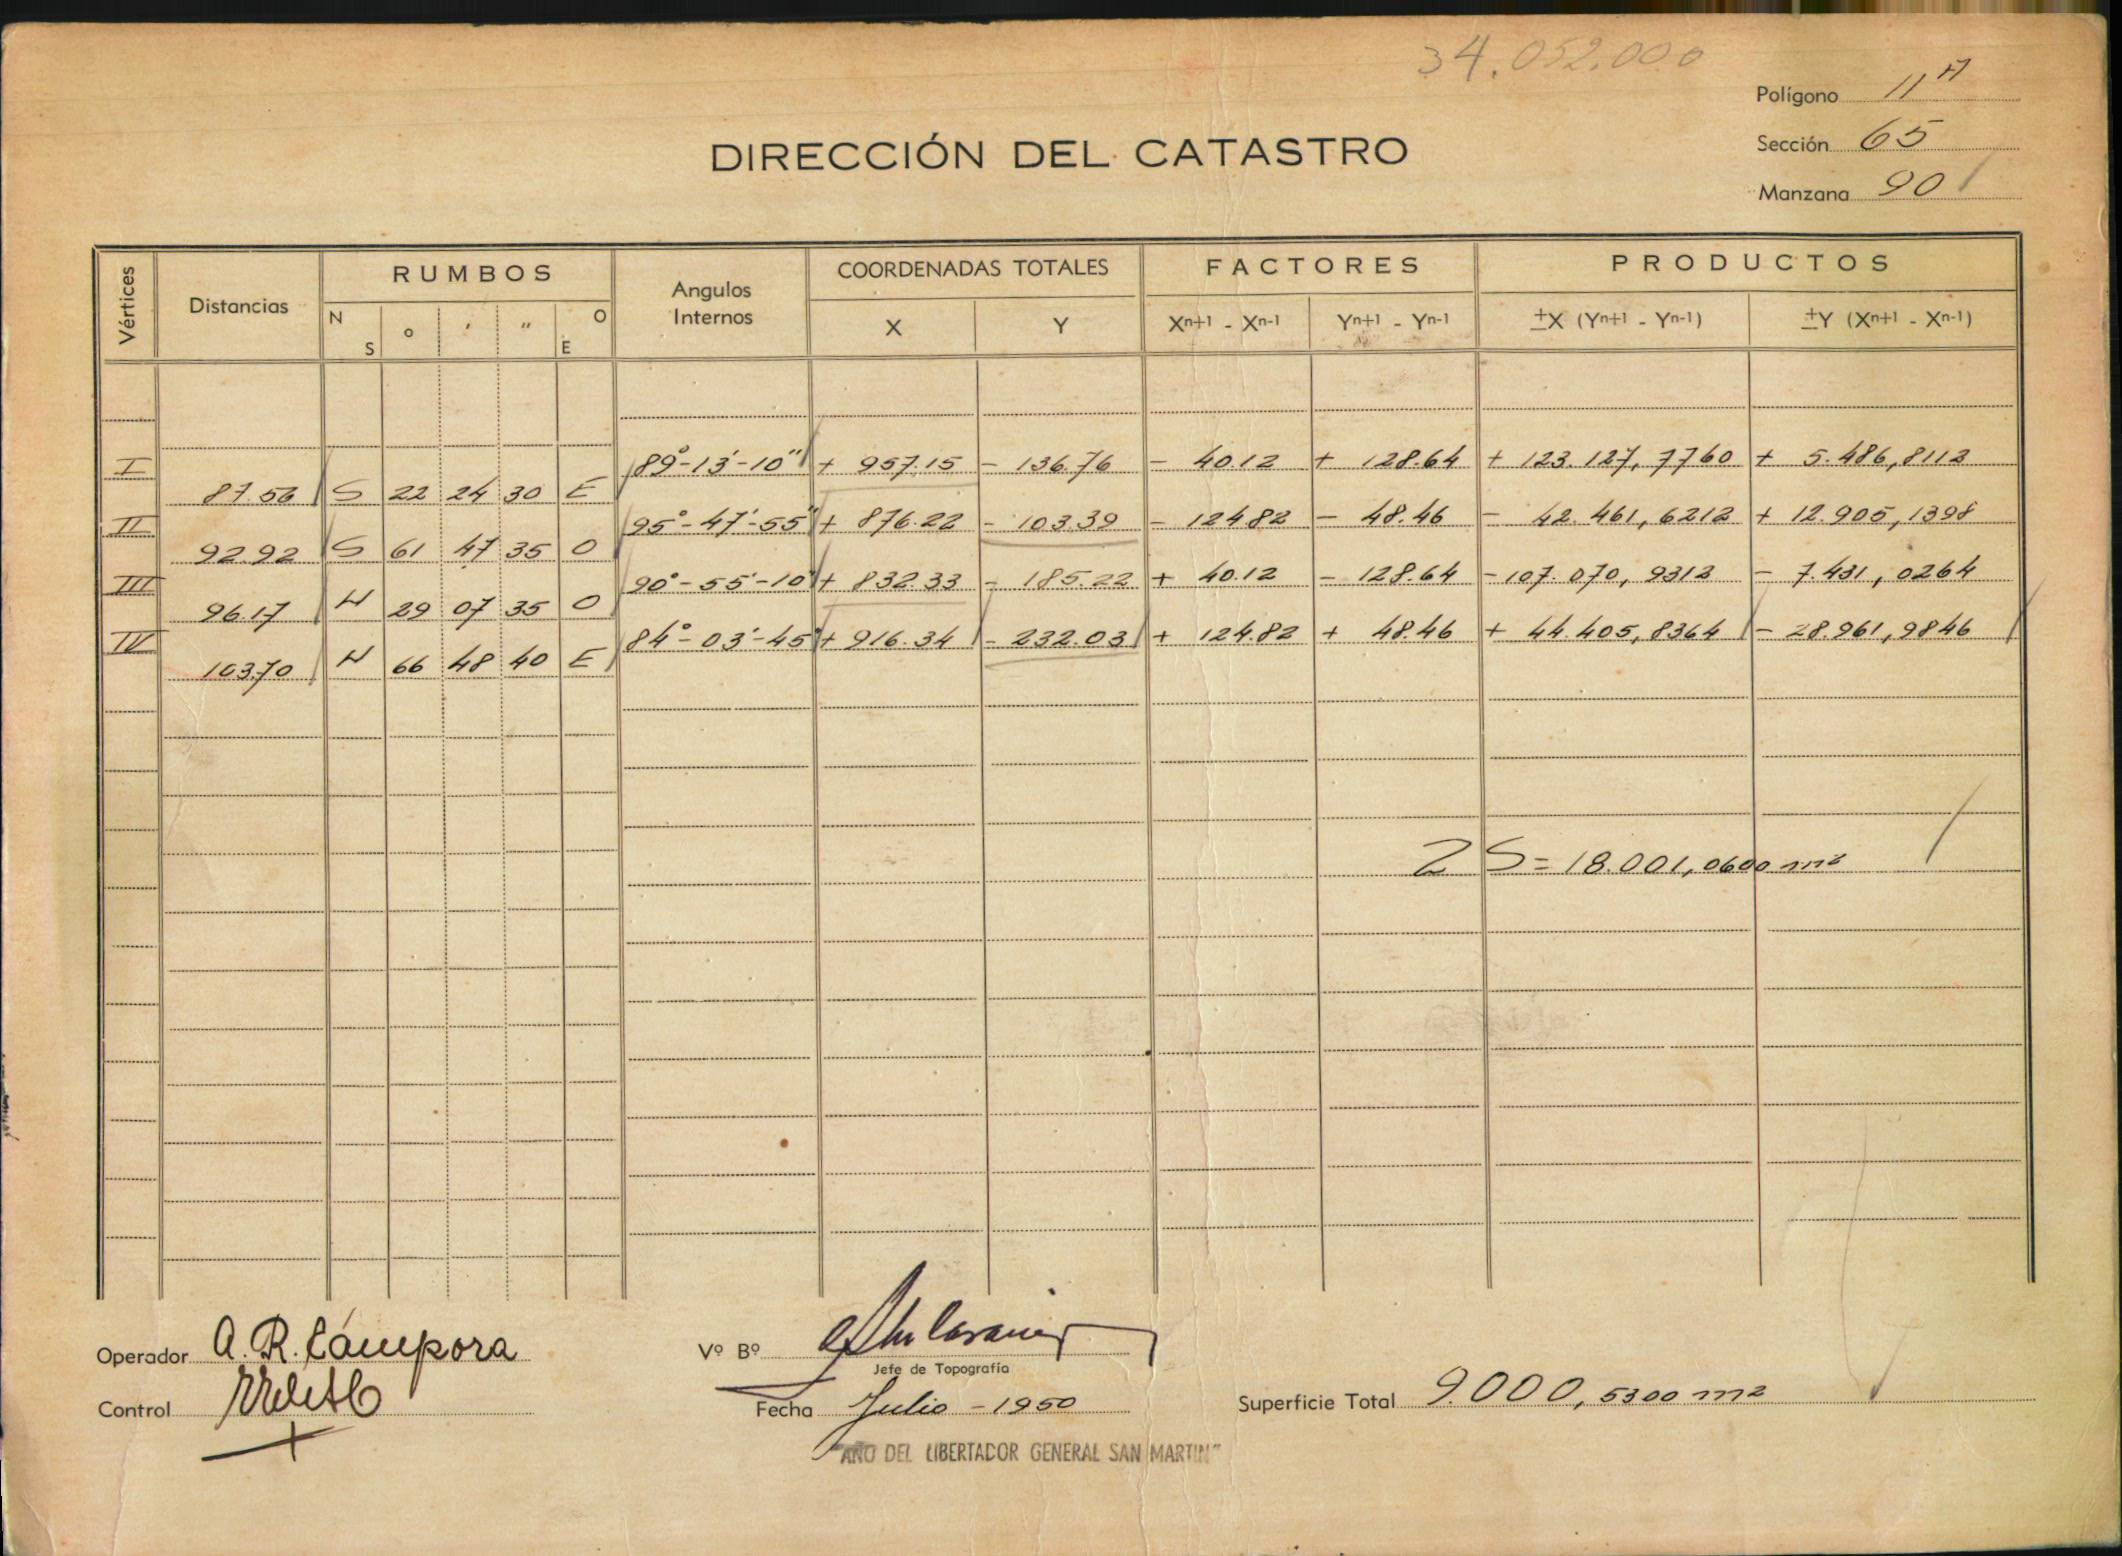 34.052.000
Polígono 11 A
Sección 65
Manzana 90
DIRECCIÓN DEL CATASTRO
Vértices Distancias RUMBOS Angulos Internos COORDENADAS TOTALES FACTORES PRODUCTOS
N S o ′ ″ O E X Y Xn+1 - Xn-1 Yn+1 - Yn-1 ±X (Yn+1 - Yn-1) ±Y (Xn+1 - Xn-1)
I 89°-13'-10" + 957.15 - 136.76 - 40.12 + 128.64 + 123.127,7760 + 5.486,8112
87.56 S 22 24 30 E
II 95°-47'-55" + 876.22 - 103.39 - 124.82 - 48.46 - 42.461,6212 + 12.905,1398
92.92 S 61 47 35 O
III 90°-55'-10" + 832.33 - 185.22 + 40.12 - 128.64 - 107.070,9312 - 7.431,0264
96.17 N 29 07 35 O
IV 84°-03'-45" + 916.34 - 232.03 + 124.82 + 48.46 + 44.405,8364 - 28.961,9846
103.70 N 66 48 40 E
2 S = 18.001,0600 m2
Operador A. R. Cámpora
Vº Bº
Jefe de Topografía
Control
Fecha Julio - 1950
Superficie Total 9.000,5300 m2
"AÑO DEL LIBERTADOR GENERAL SAN MARTIN"